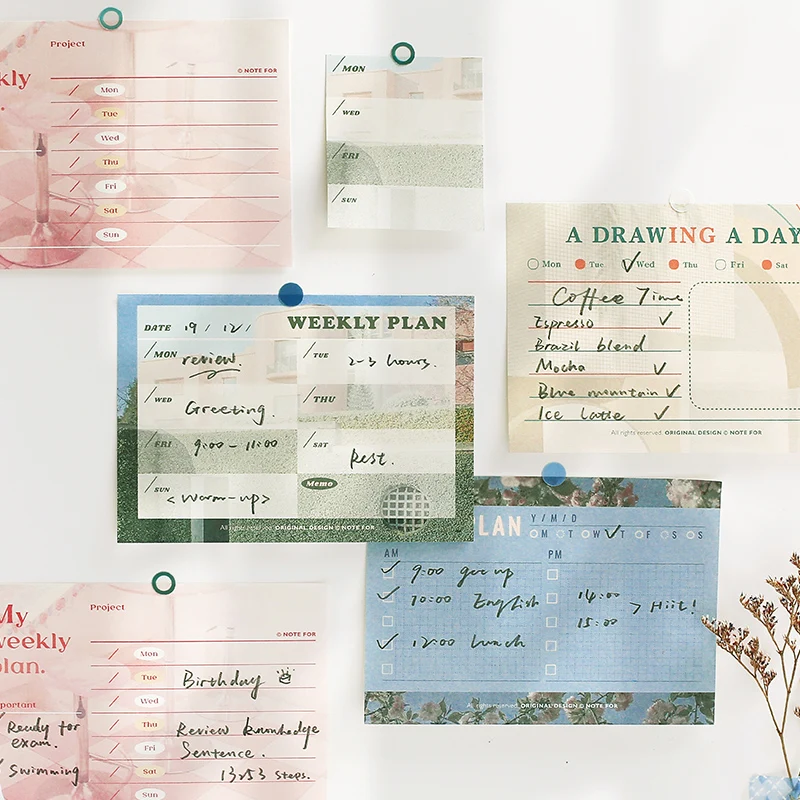 Project
kly
© NOTE FOR
Mon
Tue
Wed
Thu
Fri
Sat
Sun
/MON
/WED
/FRI
/SUN
A DRAWING A DAY
Mon Tue Wed Thu Fri Sat
Coffee Time
Espresso ✓
Brazil blend
Mocha ✓
Blue mountain ✓
Ice latte ✓
All rights reserved ORIGINAL DESIGN © NOTE FOR
DATE 19 / 12 /
WEEKLY PLAN
/MON review.
/TUE 2-3 hours.
/WED Greeting.
/THU
/FRI 9:00 - 11:00
/SAT Rest.
/SUN <Warm-up>
Memo
All rights reserved ORIGINAL DESIGN © NOTE FOR
LAN
Y / M / D
M T W T F S S
AM
PM
✓ 9:00 get up
✓ 10:00 English
✓ 12:00 lunch
14:00
15:00
> Hiit!
All rights reserved ORIGINAL DESIGN © NOTE FOR
My
weekly
plan.
Project
© NOTE FOR
Mon
Tue Birthday
Wed
Thu Review knowhedge
Fri Sentence.
Sat
Sun
portant
Ready for
exam.
Swimming